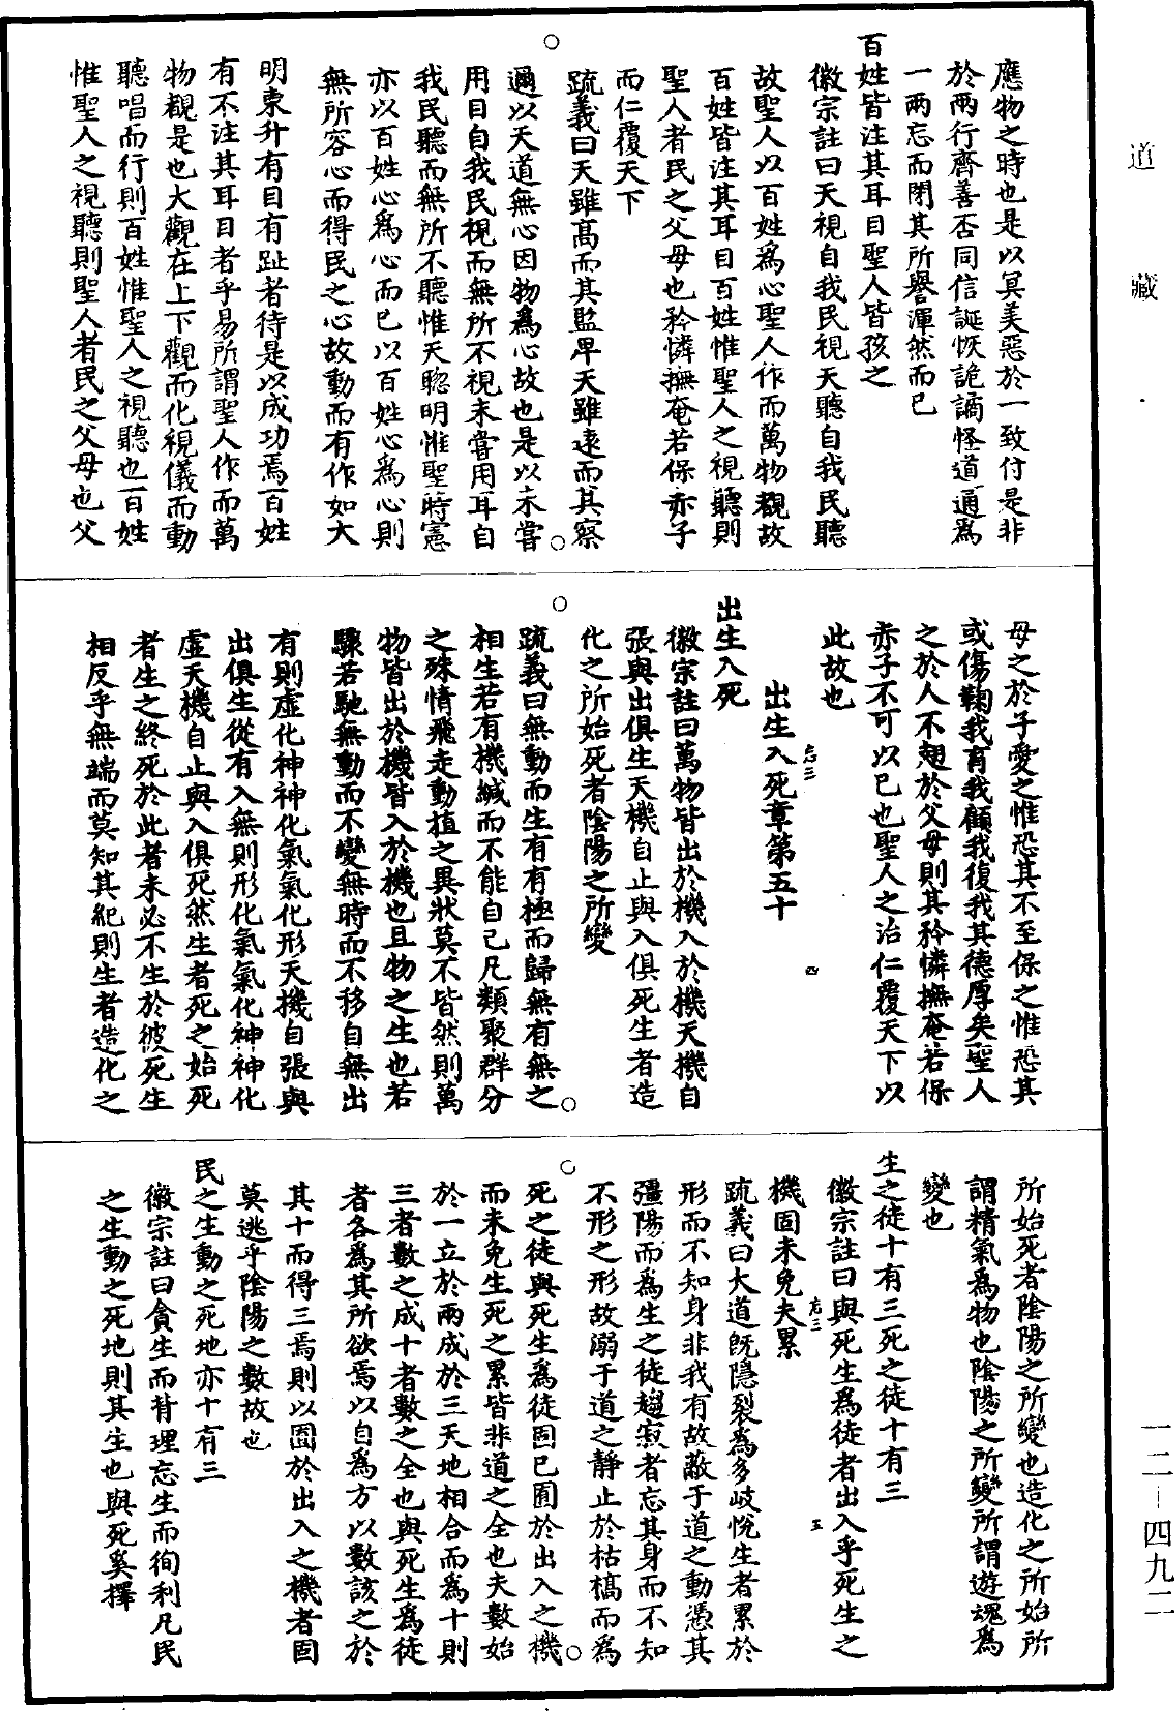 道藏
一二—四九二
應物之時也是以冥美惡於一致付是非
於兩行齊善否同信誕恢詭譎怪道通為
一兩忘而閉其所譽渾然而已
百姓皆注其耳目聖人皆孩之
徽宗註曰天視自我民視天聽自我民聽
故聖人以百姓為心聖人作而萬物覩故
百姓皆注其耳目百姓惟聖人之視聽則
聖人者民之父母也矜憐撫奄若保赤子
而仁覆天下
疏義曰天雖髙而其監卑天雖遠而其察
邇以天道無心因物為心故也是以未嘗
用目自我民視而無所不視未嘗用耳自
我民聽而無所不聽惟天聦明惟聖時憲
亦以百姓心為心而已以百姓心為心則
無所容心而得民之心故動而有作如大
明東升有目有趾者待是以成功焉百姓
有不注其耳目者乎易所謂聖人作而萬
物覩是也大觀在上下觀而化視儀而動
聽唱而行則百姓惟聖人之視聽也百姓
惟聖人之視聽則聖人者民之父母也父
母之於子愛之惟恐其不至保之惟恐其
或傷鞠我育我顧我復我其德厚矣聖人
之於人不翅於父母則其矜憐撫奄若保
赤子不可以已也聖人之治仁覆天下以
此故也
出生入死章第五十
出生入死
徽宗註曰萬物皆出於機入於機天機自
張與出俱生天機自止與入俱死生者造
化之所始死者陰陽之所變
疏義曰無動而生有有極而歸無有無之
相生若有機緘而不能自已凡類聚群分
之殊情飛走動植之異狀莫不皆然則萬
物皆出於機皆入於機也且物之生也若
驟若馳無動而不變無時而不移自無出
有則虛化神神化氣氣化形天機自張與
出俱生從有入無則形化氣氣化神神化
虛天機自止與入俱死然生者死之始死
者生之終死於此者未必不生於彼死生
相反乎無端而莫知其紀則生者造化之
所始死者陰陽之所變也造化之所始所
謂精氣為物也陰陽之所變所謂遊魂為
變也
生之徒十有三死之徒十有三
徽宗註曰與死生為徒者出入乎死生之
機固未免夫累
疏義曰大道旣隱裂為多岐悅生者累於
形而不知身非我有故敝于道之動憑其
彊陽而為生之徒趨寂者忘其身而不知
不形之形故溺于道之靜止於枯槁而為
死之徒與死生為徒固已囿於出入之機
而未免生死之累皆非道之全也夫數始
於一立於兩成於三天地相合而為十則
三者數之成十者數之全也與死生為徒
者各為其所欲焉以自為方以數該之於
其十而得三焉則以囿於出入之機者固
莫逃乎陰陽之數故也
民之生動之死地亦十有三
徽宗註曰貪生而背理忘生而徇利凡民
之生動之死地則其生也與死奚擇